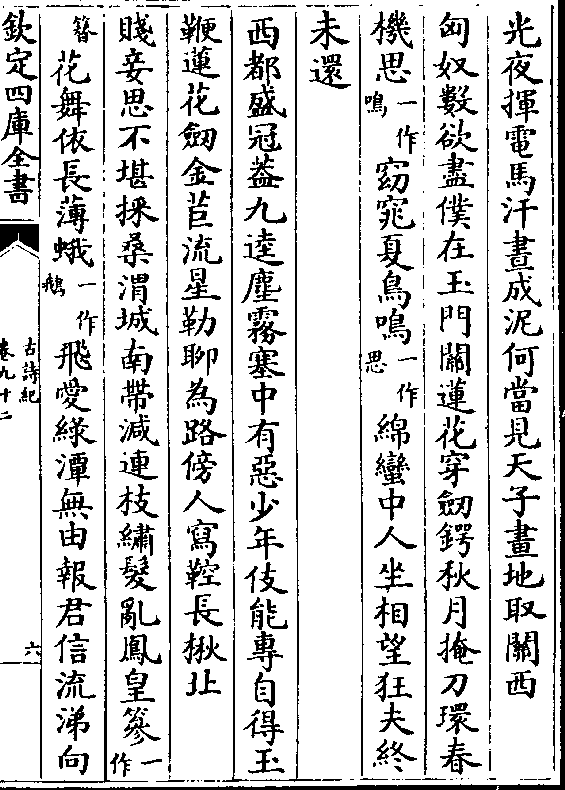 光夜揮電馬汗晝成泥何當見天子畫地取關西
匈奴數欲盡僕在玉門關蓮花穿劒鍔秋月掩刀環春
機思一作鳴窈窕夏鳥鳴一作思綿蠻中人坐相望狂夫終
未還
西都盛冠葢九逵塵霧塞中有惡少年伎能專自得玉
鞭蓮花劒金苣流星勒聊為路傍人寫鞚長楸北
賤妾思不堪採桑渭城南帶減連枝繡髮亂鳳皇篸一作
簪花舞依長薄蛾一作鵝飛愛綠潭無由報君信流涕向
欽定四庫全書
古詩紀
卷九十二
六